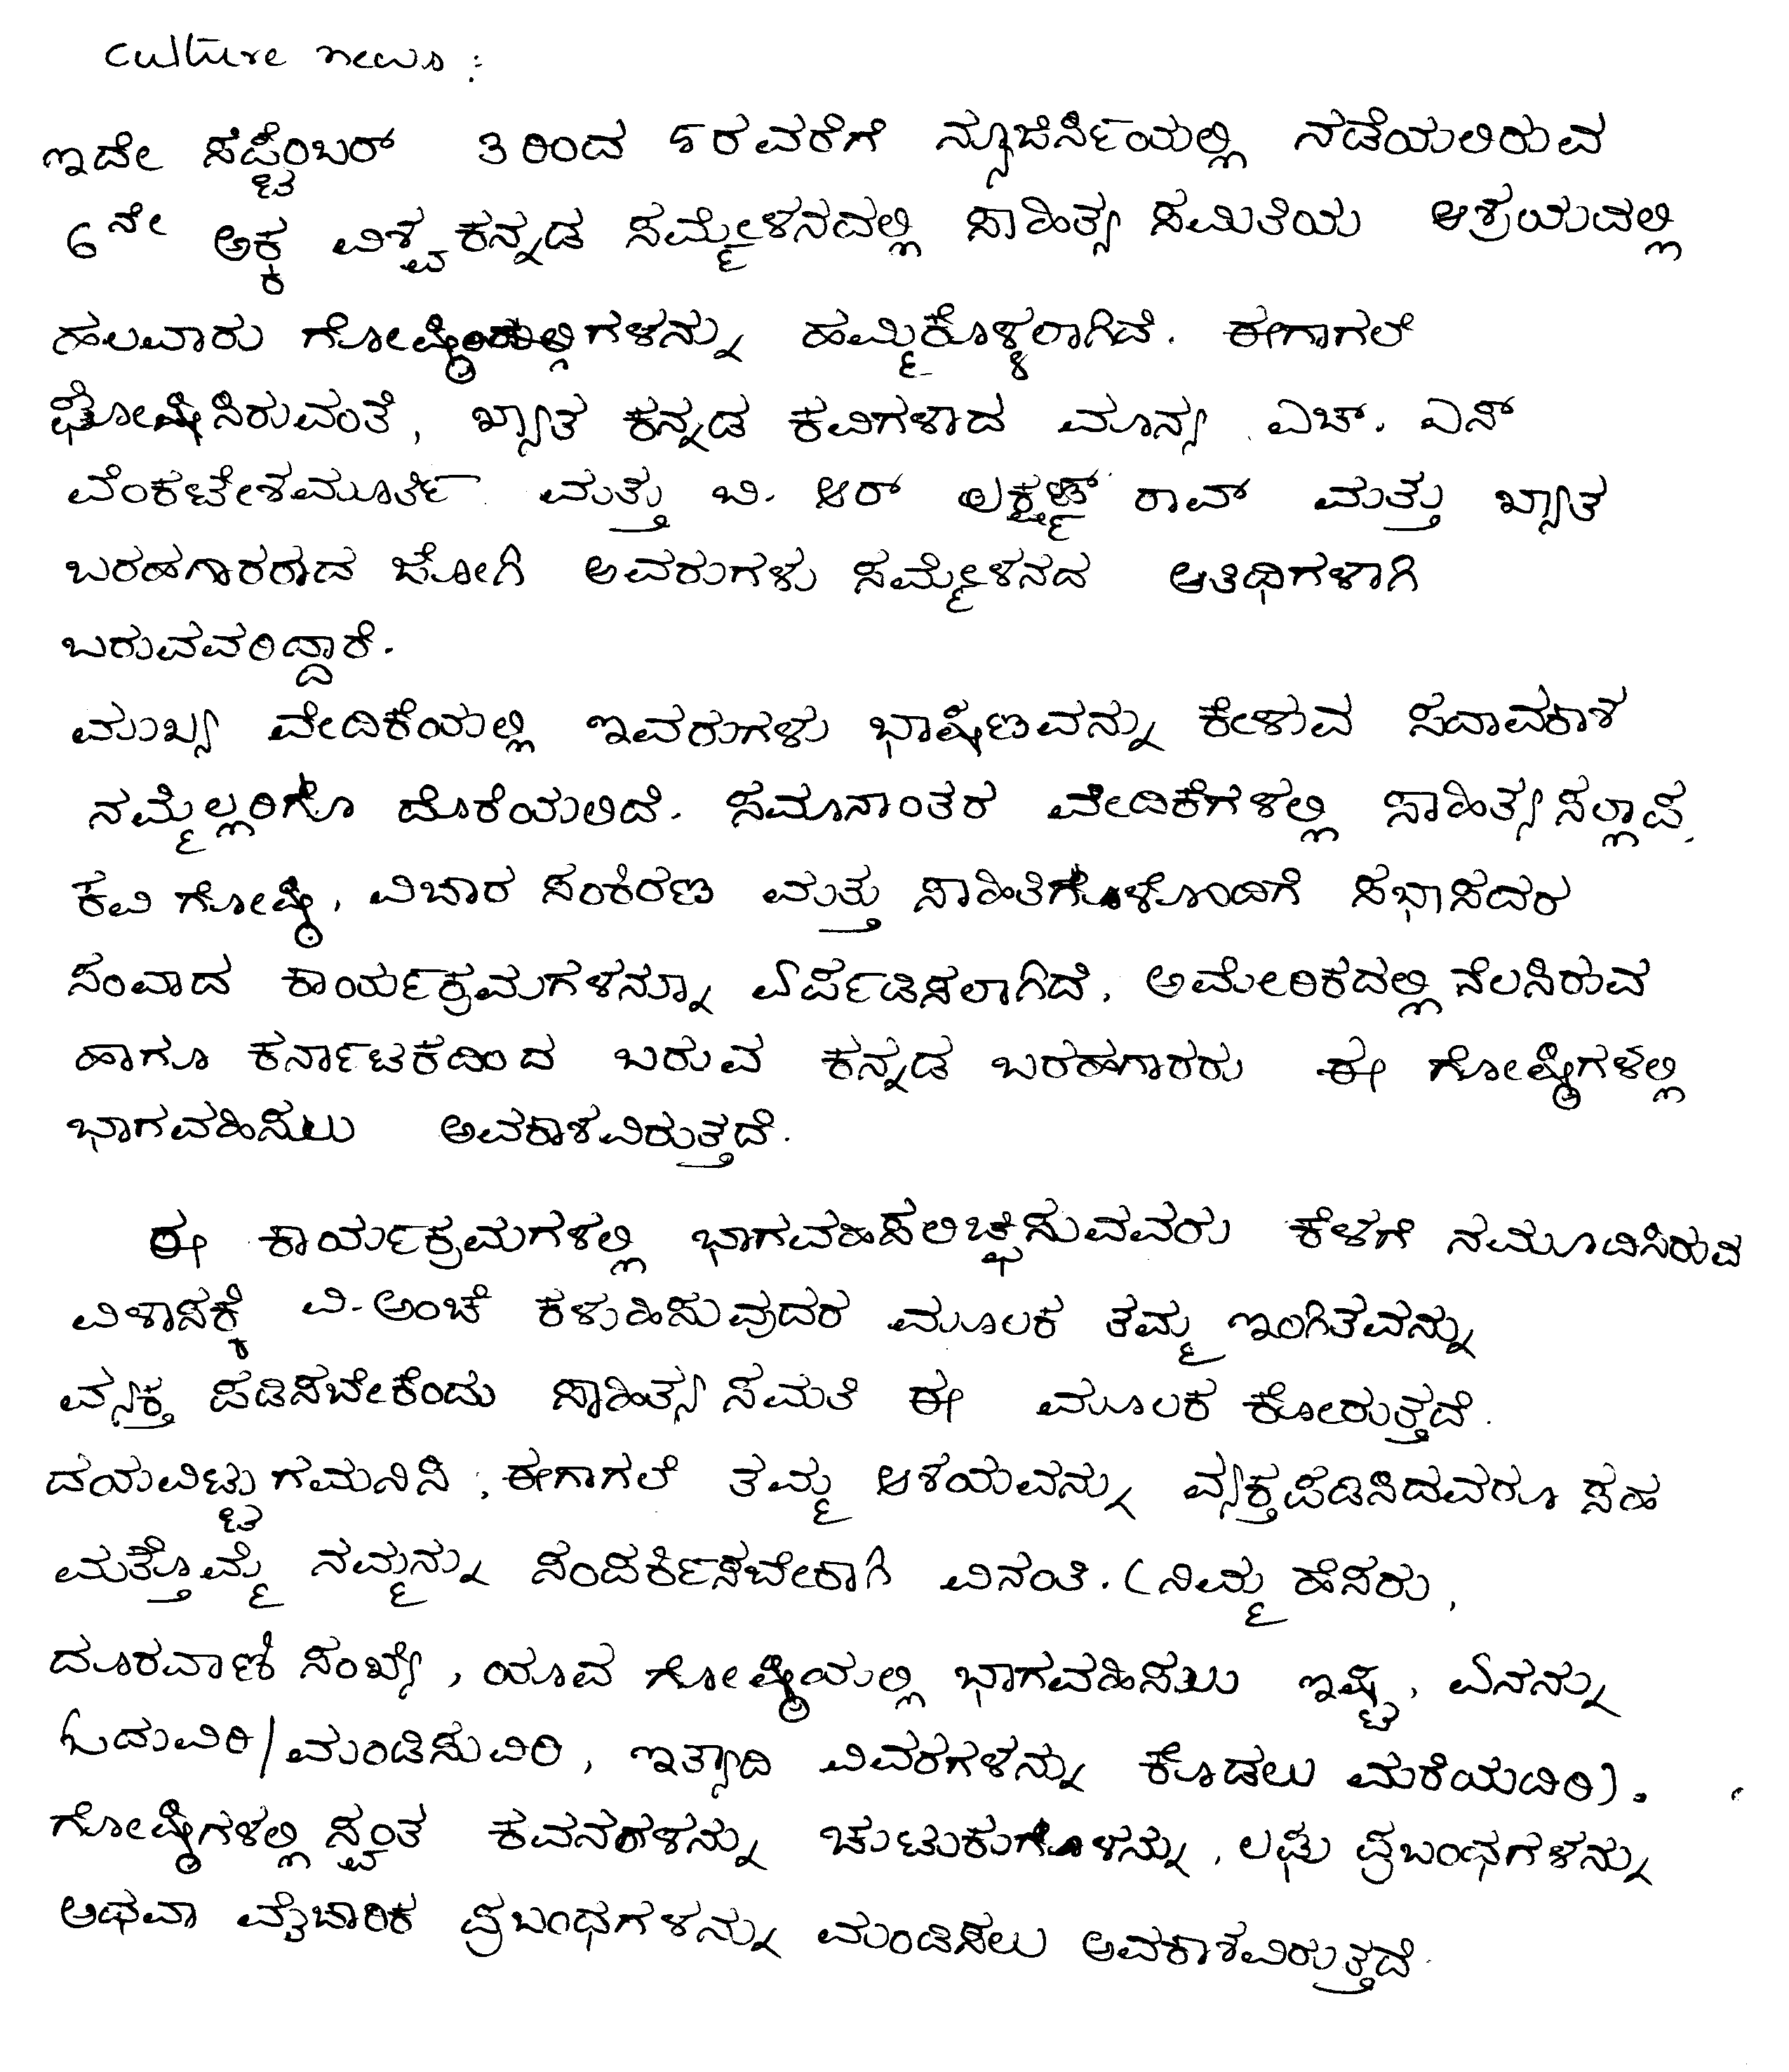 culture news:
ಇದೇ ಸಪ್ಟೆಂಬರ್ 3ರಿಂದ 5ರವರೆಗೆ ನ್ಯೂಜೆರ್ಸಿಯಲ್ಲಿ ನಡೆಯಲಿರುವ
6ನೇ ಅಕ್ಕ ವಿಶ್ವ ಕನ್ನಡ ಸಮ್ಮೇಳನದಲ್ಲಿ ಸಾಹಿತ್ಯ ಸಮಿತಿಯ ಆಶ್ರಯದಲ್ಲಿ
ಹಲವಾರು ಹಮ್ಮಿಕೊಳ್ಳಲಾಗಿದೆ. ಈಗಾಗಲೆ
ಘೋಷಿಸಿರುವಂತೆ, ಖ್ಯಾತ ಕನ್ನಡ ಕವಿಗಳಾದ ಮಾನ್ಯ ಎಚ್. ಎಸ್
ವೆಂಕಟೇಶಮೂರ್ತಿ ಮತ್ತು ಬಿ. ಆರ್ ಲಕ್ಷ್ಮಣ್ ರಾವ್ ಮತ್ತು ಖ್ಯಾತ
ಬರಹಗಾರರಾದ ಜೋಗಿ ಅವರುಗಳು ಸಮ್ಮೇಳನದ ಅತಿಥಿಗಳಾಗಿ
ಬರುವವರಿದ್ದಾರೆ.
ಮುಖ್ಯ ವೇದಿಕೆಯಲ್ಲಿ ಇವರುಗಳು ಭಾಷಣವನ್ನು ಕೇಳುವ ಸದಾವಕಾಶ
ನಮ್ಮೆಲ್ಲರಿಗೂ ದೊರೆಯಲಿದೆ. ಸಮಾನಾಂತರ ವೇದಿಕೆಗಳಲ್ಲಿ ಸಾಹಿತ್ಯ ಸಲ್ಲಾಪ,
ಕವಿ ಗೋಷ್ಠಿ, ವಿಚಾರ ಸಂಕಿರಣ ಮತ್ತು ಸಾಹಿತಿಗಳೊಂದಿಗೆ ಸಭಾಸದರ
ಸಂವಾದ ಕಾರ್ಯಕ್ರಮಗಳನ್ನೂ ಏರ್ಪಡಿಸಲಾಗಿದೆ. ಅಮೇರಿಕದಲ್ಲಿ ನೆಲಸಿರುವ
ಹಾಗೂ ಕರ್ನಾಟಕದಿಂದ ಬರುವ ಕನ್ನಡ ಬರಹಗಾರರು ಈ ಗೋಷ್ಠಿಗಳಲ್ಲಿ
ಭಾಗವಹಿಸಲು ಅವಕಾಶವಿರುತ್ತದೆ.
ಈ ಕಾರ್ಯಕ್ರಮಗಳಲ್ಲಿ ಭಾಗವಹಿಸಲಿಚ್ಛಿಸುವವರು ಕೆಳಗೆ ನಮೂದಿಸಿರುವ
ವಿಳಾಸಕ್ಕೆ ವಿ-ಅಂಚೆ ಕಳುಹಿಸುವುದರ ಮೂಲಕ ತಮ್ಮ ಇಂಗಿತವನ್ನು
ವ್ಯಕ್ತ ಪಡಿಸಬೇಕೆಂದು ಸಾಹಿತ್ಯ ಸಮತಿ ಈ ಮೂಲಕ ಕೋರುತ್ತದೆ.
ದಯವಿಟ್ಟು ಗಮನಿಸಿ, ಈಗಾಗಲೆ ತಮ್ಮ ಆಶಯವನ್ನು ವ್ಯಕ್ತಪಡಿಸಿದವರೂ ಸಹ
ಮತ್ತೊಮ್ಮೆ ನಮ್ಮನ್ನು ಸಂಪರ್ಕಿಸಬೇಕಾಗಿ ವಿನಂತಿ. (ನಿಮ್ಮ ಹೆಸರು,
ದೂರವಾಣಿ ಸಂಖ್ಯೆ, ಯಾವ ಗೋಷ್ಠಿಯಲ್ಲಿ ಭಾಗವಹಿಸಲು ಇಷ್ಟ, ಏನನ್ನು
ಓದುವಿರಿ/ಮಂಡಿಸುವಿರಿ, ಇತ್ಯಾದಿ ವಿವರಗಳನ್ನು ಕೊಡಲು ಮರೆಯದಿರಿ).
ಗೋಷ್ಠಿಗಳಲ್ಲಿ ಸ್ವಂತ ಕವನಗಳನ್ನು ಚುಟುಕುಗಳನ್ನು, ಲಘು ಪ್ರಬಂಧಗಳನ್ನು
ಅಥವಾ ವೈಚಾರಿಕ ಪ್ರಬಂಧಗಳನ್ನು ಮಂಡಿಸಲು ಅವಕಾಶವಿರುತ್ತದೆ.